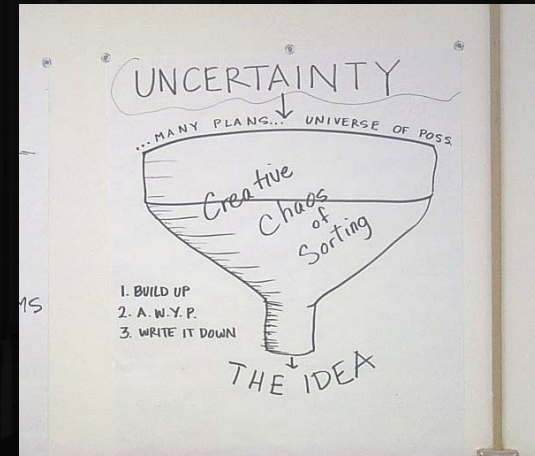 UNCERTAINTY
...MANY PLANS... UNIVERSE OF POSS.
Creative
Chaos
of
Sorting
1. BUILD UP
2. A.W.Y.P.
3. WRITE IT DOWN
THE IDEA